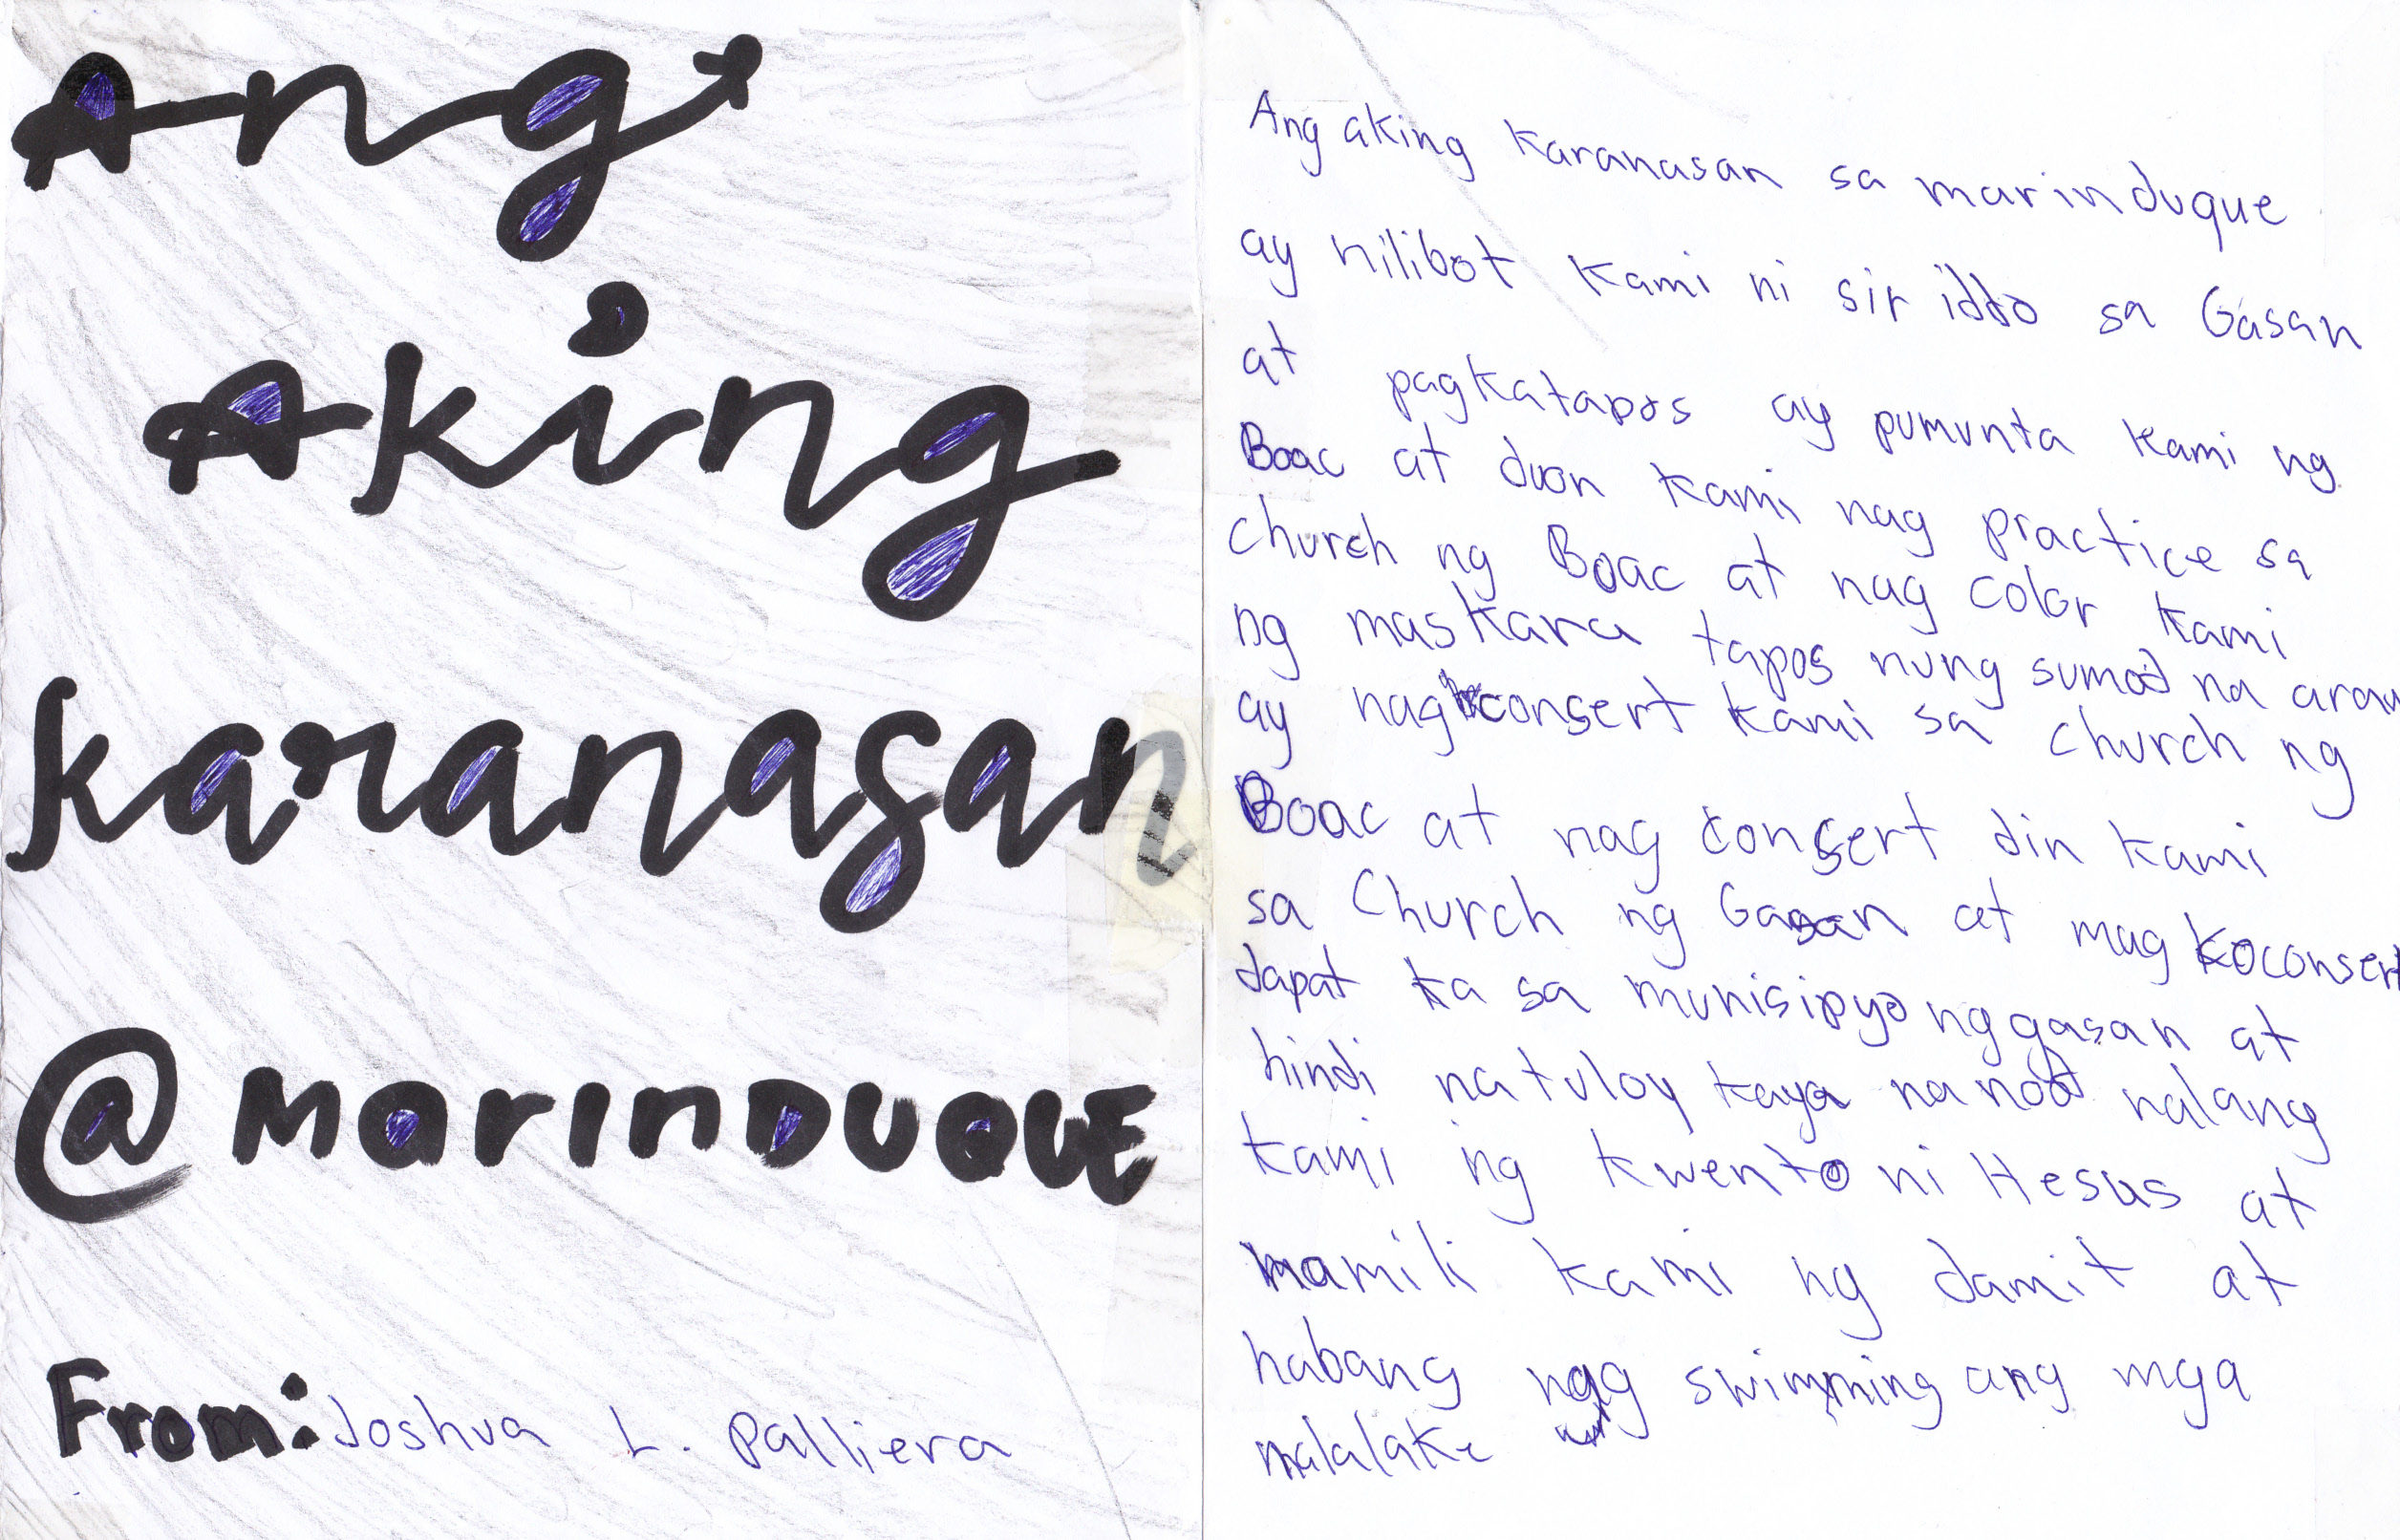 Ang
Aking
karanasan
@ marinDUQUE
From: Joshua L. Palliera
Ang aking karanasan sa marinduque
ay nilibot kami ni sir iddo sa Gasan
at pagkatapos ay pumunta kami ng
Boac at duon kami nag practice sa
church ng Boac at nag color kami
ng maskara tapos nung sumod na araw
ay nag consert kami sa church ng
Boac at nag consert din kami
sa Church ng Gasan at mag koconsert
dapat ka sa munisipyo ng gasan at
hindi natuloy kaya na nood nalang
kami ng kwento ni Hesus at
mamili kami ng damit at
habang nag swimming ang mga
malalake